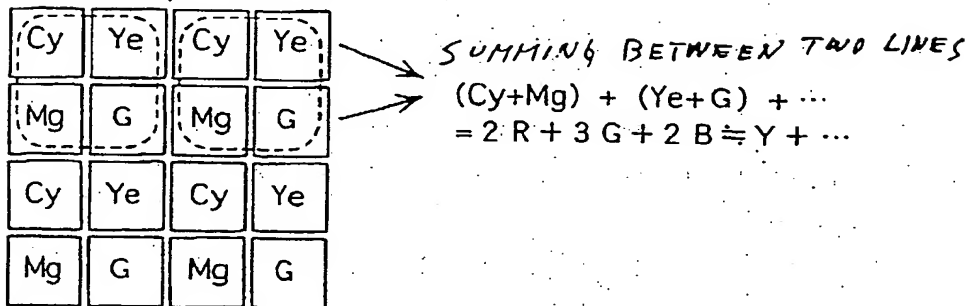 Cy Ye Cy Ye
Mg G Mg G
Cy Ye Cy Ye
Mg G Mg G
SUMMING BETWEEN TWO LINES
(Cy+Mg) + (Ye+G) + ···
= 2 R + 3 G + 2 B ≒ Y + ···